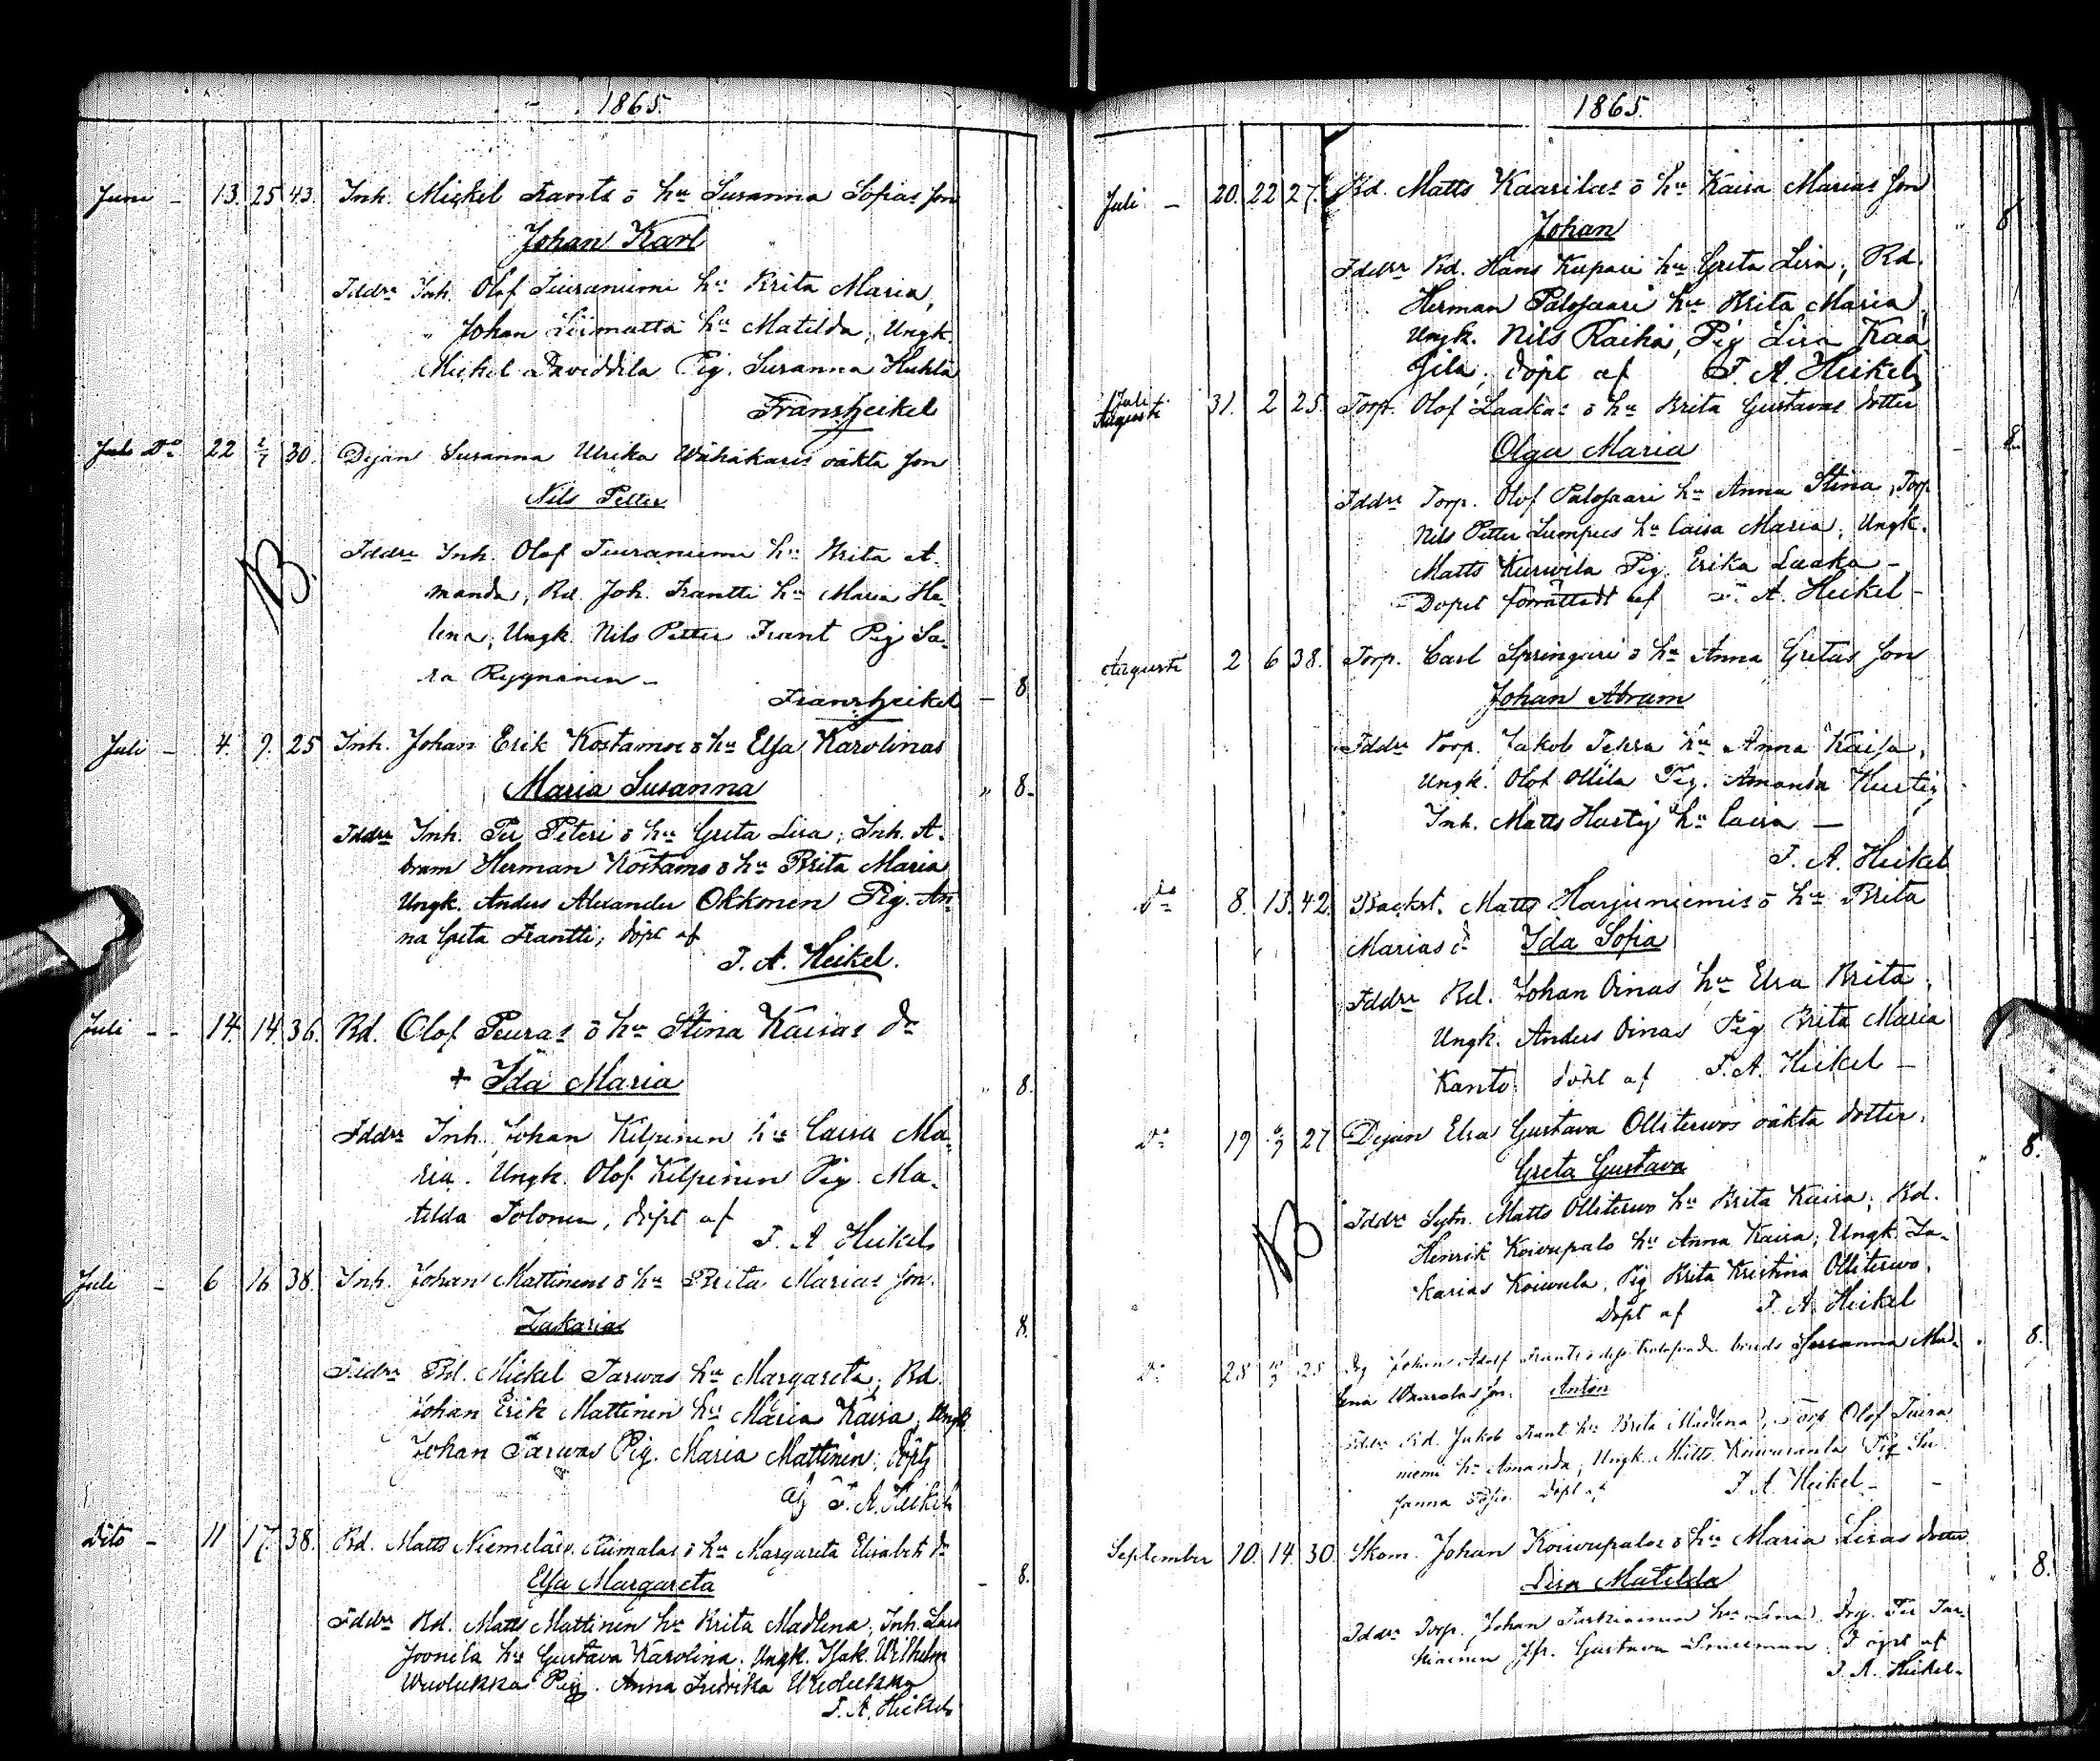 1865.
Juni - 13. 25 43. Inh. Mickel Frants o hu Susanna Sofias son
Johan Karl
Fddrr Inh. Olof Tiuraniemi hu Brita Maria,
" Johan Liimatta hu Matilda, Ungk.
Mickel Daviddila Pig. Susanna Huhta
Frans Heikel
Do 22 2/7 30. Pigan Susanna Ulrika Wähäkaris oäkta son
Nils Petter
Fddrr Inh. Olof Tiuraniemi hu Brita A-
manda, Bd. Joh. Frantti hu Maria He-
lena, Ungk. Nils Petter Frant Pig Sa-
ra Ryynänen -
B.
Frans Heikel - 8.
Juli - 4. 9. 25 Inh. Johan Erik Kostamos o hu Elsa Karolinas
Maria Susanna " 8.
Fddrr Inh. Per Peteri o hu Greta Lisa, Inh. A-
bram Herman Kostamo o hu Brita Maria
Ungk. Anders Alexander Okkonen Pig. An-
na Greta Frantti, döpt af
F. A. Heikel.
Juli - - 14. 14. 36. Bd. Olof Peuras o hu Stina Kaisas dr
+ Ida Maria " 8.
Fddrr Inh. Johan Kilpinen hu Caisa Ma-
ria. Ungk. Olof Kilpinen Pig. Ma-
tilda Tolonen, döpt af
F. A Heikel,
Juli - 6 16 38. Inh. Johan Mattinens o hu Brita Marias son.
Zakarias 8.
Fddrr Bd. Mickel Tarwas hu Margareta, Bd.
Johan Erik Mattinen hu Maria Kaisa, Ungk
Johan Tarwas Pig. Maria Mattinen, döpt
af F. A. Heikel
Dito - 11 17. 38. Bd. Matts Niemelä o hu Margareta Elisabets dr
Elsa Margareta - 8.
Fddrr Bd. Matts Mattinen hu Brita Madlena, Inh. Lars
Joonila hu Gustava Karolina. Ungk. Isak Wilhelm
Pig. Anna Fredrika
F. A. Heikel
1865.
Juli - 20. 22 27. Bd. Matts Kaarilas o hu Kaisa Marias son
Johan " 8
Fddrr Bd. Hans Kupari hu Greta Lisa, Bd.
Herman Palosaari hu Brita Maria,
Ungk. Nils Raikia, Pig Lisa Kaa
döpt af F. A. Heikel
Juli
Augusti 31. 2 25. Torp. Olof Laakas o hu Brita Gustavas dotter
Olga Maria - 8.
Fddrr Torp. Olof Palosaari hu Anna Stina, Torp
Nils Petter Lumpus hu Caisa Maria, Ungk.
Matts Kurwila Pig. Erika Laaka -
Dopet förrättadt af F. A. Heikel -
Augusti 2 6 38. Torp. Carl Springari o hu Anna Gretas son
Johan Abram
Fddrr Torp. Jakob hu Anna Kaisa,
Ungk. Olof Ollila Pig. Amanda Hurtig
Inh. Matts Hurtig hu Caisa -
F. A. Heikel
Do 8. 13. 42. Backst. Matts Harjuniemis o hu Brita
Marias d. Ida Sofia
Fddrr Bd. Johan Oinas hu Elsa Brita,
Ungk. Anders Oinas Pig Brita Maria
Kanto. döpt af F. A. Heikel -
Do 19 27 Pigan Elsa Gustava Olliterwos oäkta dotter,
Greta Gustava " 8.
Fddrr Sytn. Matts Olliterwo hu Brita Kaisa, Bd.
Henrik Koivupalo hu Anna Kaisa, Ungk. Za-
karias Koiwula, Pig Brita Kristina Olliterwo,
B
Döpt af F. A. Heikel
Do 28 25 Johan Adolf Frants o bruds Susanna Mad- " 8.
lena son. Anton
Fddrr Bd. Jakob Frant hu Brita Madlena, Torp. Olof Tiura
niemi hu Amanda, Ungk. Matts Pig Su
sanna Sofia. Döpt af F. A. Heikel -
September 10. 14. 30. Skom. Johan Koiwupalos o hu Maria Lisas dotter
Lisa Matilda " 8.
Fddrr Torp. Johan Tarkiainen hu Lena, Drg. Per Tar-
kiainen Jfr. Gustava Döpt af
F. A. Heikel -